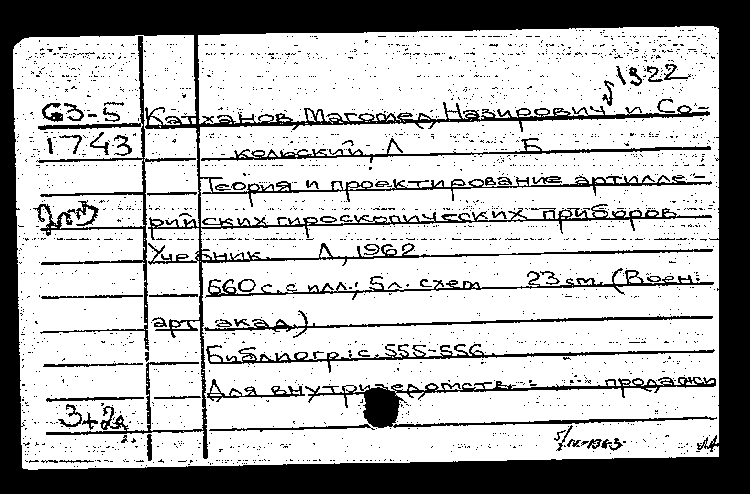 1922
63-5 Катханов, Магомед Назирович и Со-
1743 кольский, Л Б
Теория и проектирование артилле-
рийских гироскопических приборов
Учебник. Л., 1962.
560 с. с илл.; 5 л. схем 23 см. (Воен.
арт. акад.).
Библиогр.: с. 555-556.
Для внутриведомств. продажи
3+2д
5/IX-1963